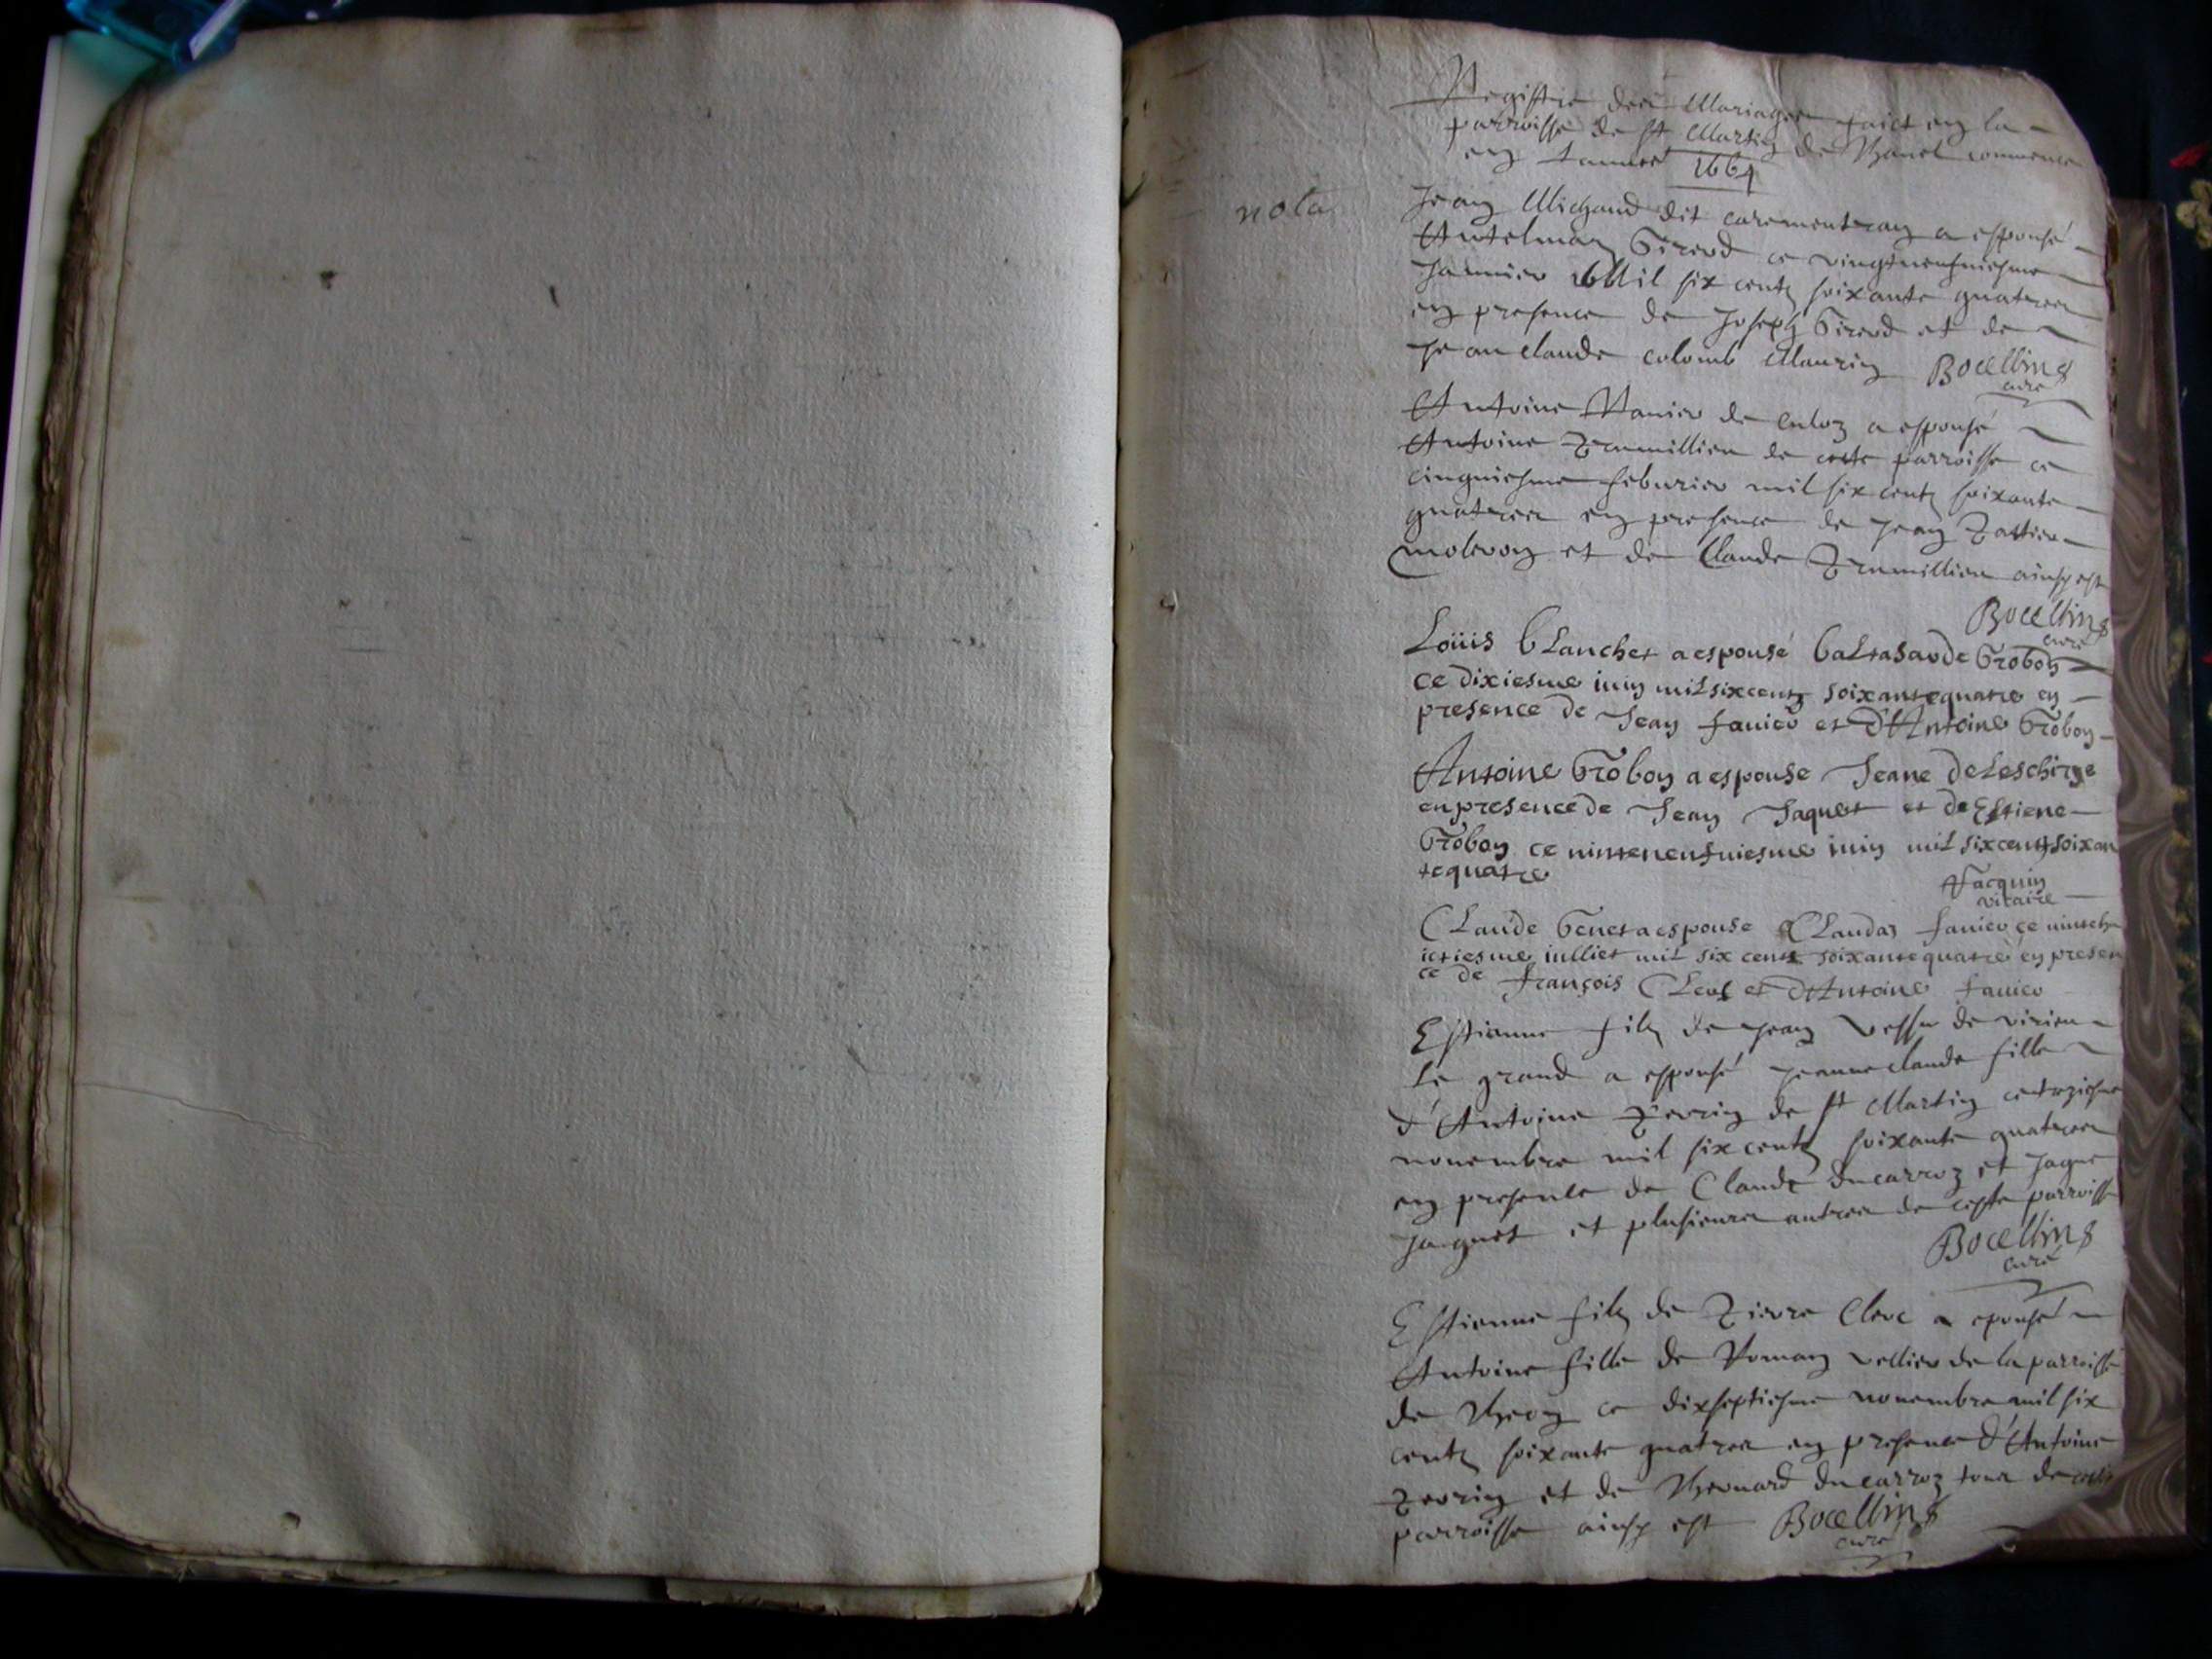 Registre des Mariages faict en la
parroisse de st Martin de commence
en l'annee 1664
nota
Jean Michaud dit carementran a espousé
Antelmaz Girerd ce vingtneufuiesme
Januier Mil six centz soixante quatres
en presence de Joseph Girerd et de
Jeanclaude colomb Maurin Bocellins
curé
Antoine de culoz a espousé
Antoine de ceste parroisse ce
cinquiesme feburier mil six centz soixante
quatres en presence de Jean
et de Claude ainsy est
Bocellins
curé
Loüis blanchet a espousé baltasarde Grobon
ce dixiesme iuin mil sixcentz soixantequatre en
presence de Jean fauier et d'Antoine Grobon
Antoine Grobon a espouse Jeane deleschirge
en presence de Jean Jaquet et de Estiene
Grobon ce vinteneufuiesme iuin mil sixcentz soixan
tequatre
Jacquin
vicaire
Claude Genet a espouse Claudaz fauier ce
iulliet mil six cent soixantequatre en presen
ce de françois Clerc et d'Antoine fauier
Estienne filz de Jean de virieu
le grand a espousé Jeanneclaude fille
d'Antoine Perrin de st Martin
nouembre mil six centz soixante quatres
en presence de Claude ducarroz et Jaque
Jaquet et plusieurs autres de ceste parroisse
Bocellins
curé
Estienne filz de Pierre Clerc a epousé
Antoine fille de Roman vellier de la parroisse
de ce dixseptiesme nouembre mil six
centz soixante quatres en presence d'Antoine
Perrin et de ducarroz tous de ceste
parroisse ainsy est Bocellins
curé